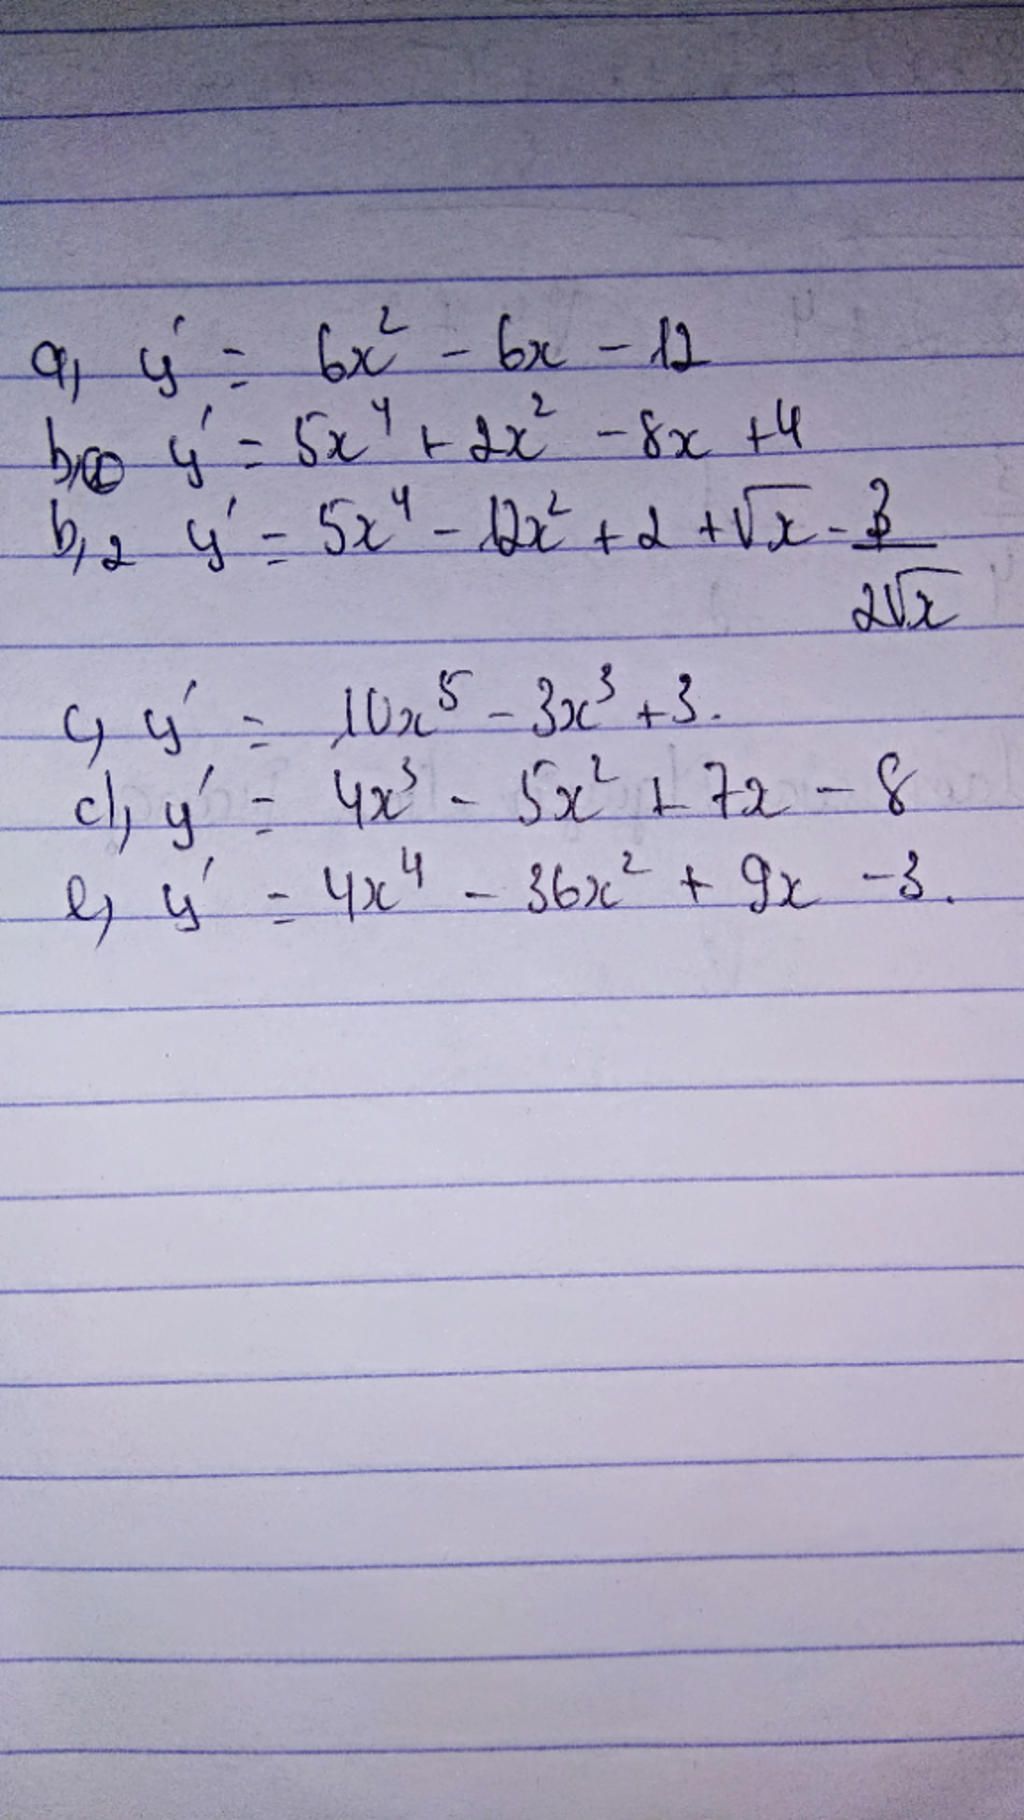 a, y' = 6x² - 6x - 12
b, y' = 5x⁴ + 2x² - 8x + 4
b,2 y' = 5x⁴ - 12x² + 2 + √x - 3/2√x
c, y' = 10x⁵ - 3x³ + 3.
d, y' = 4x³ - 5x² + 7x - 8
e, y' = 4x⁴ - 36x² + 9x - 3.